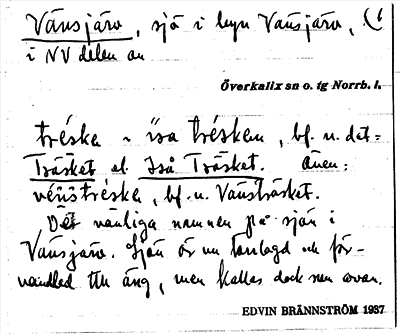 Vänsjärv, sjö i byn Vansjärv,
i NV delen av
Överkalix sn o. tg Norrb. l.
träske ~ isa träsken, bf. n. det =
Träsket el. Iså Träsket. även:
vénsträske, bf. n. Vansträsket.
Det vanliga namnen på sjön i
Vansjärv. Sjön är nu torrlagd och för-
vandlad till äng, men kallas dock som ovan.
EDVIN BRÄNNSTRÖM 1937